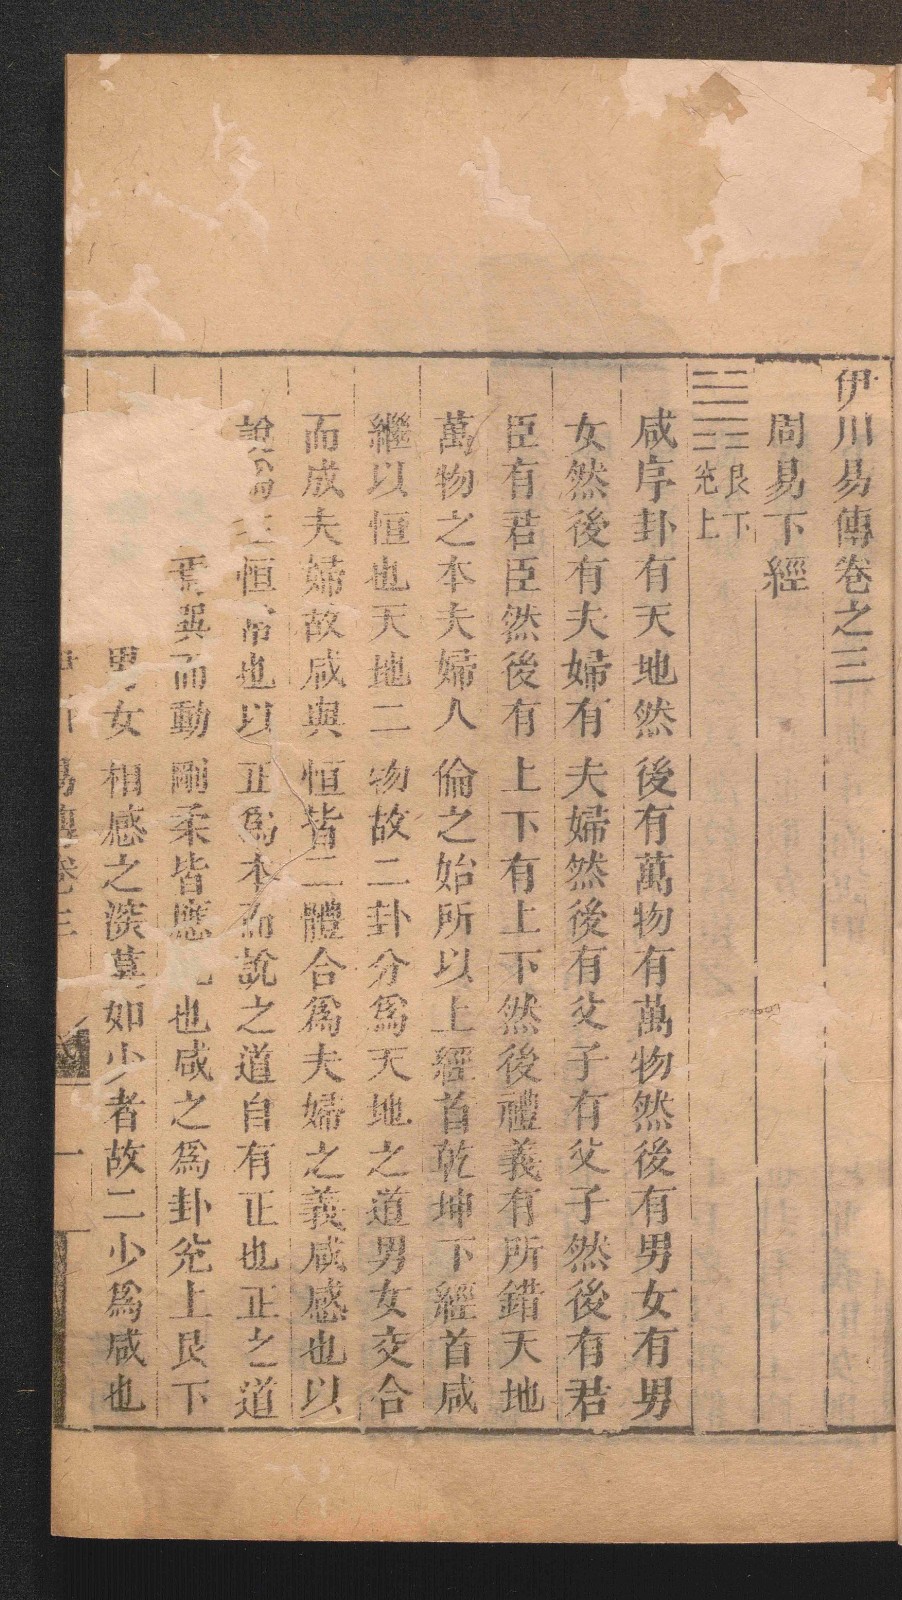 伊川易傳卷之三
周易下經
艮下
兊上
咸序卦有天地然後有萬物有萬物然後有男女有男
女然後有夫婦有夫婦然後有父子有父子然後有君
臣有君臣然後有上下有上下然後禮義有所錯天地
萬物之本夫婦人倫之始所以上經首乾坤下經首咸
繼以恒也天地二物故二卦分爲天地之道男女交合
而成夫婦故咸與恒皆二體合爲夫婦之義咸感也以
說爲主恒常也以正爲本而說之道自有正也正之道
焉巽而動剛柔皆應也咸之爲卦兊上艮下
男女相感之深莫如少者故二少爲咸也
易傳卷三
一